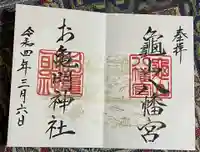 奉拝
龜山八幡宮
お亀明神社
令和四年三月六日